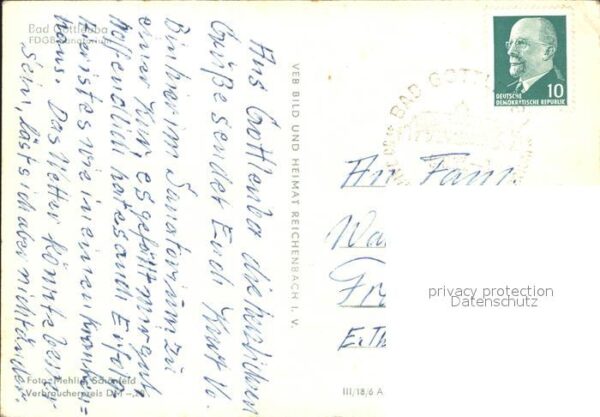 Bad Gottleuba
FDGB-Sanatorium
Aus Gottleuba die herzlichen
Grüße sendet Euch Kurt Vo.
Bin hier im Sanatorium zu
einer Kur, es gefällt mir gut
hoffentlich hat es auch Erfolg
hier ist es wie in einem Kranken=
haus. Das Wetter könnte besser
sein, läst sich aber nicht ändern.
Foto: Mehlig, Schönfeld
Verbraucherpreis DM -,20
VEB BILD UND HEIMAT REICHENBACH I. V.
III/18/6 A
10
DEUTSCHE
DEMOKRATISCHE REPUBLIK
BAD GOTTL
An Fam
Wa
Fr
privacy protection
Datenschutz